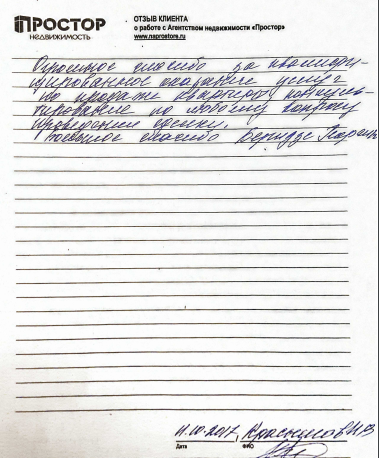 ПРОСТОР
НЕДВИЖИМОСТЬ
ОТЗЫВ КЛИЕНТА
о работе с Агентством недвижимости «Простор»
www.naprostore.ru
Огромное спасибо за квалифи-
цированное оказание услуг
по продаже квартиры, консуль-
тирование по любому вопросу
проведения сделки.
Большое спасибо
11.10.2017,
Дата
ФИО